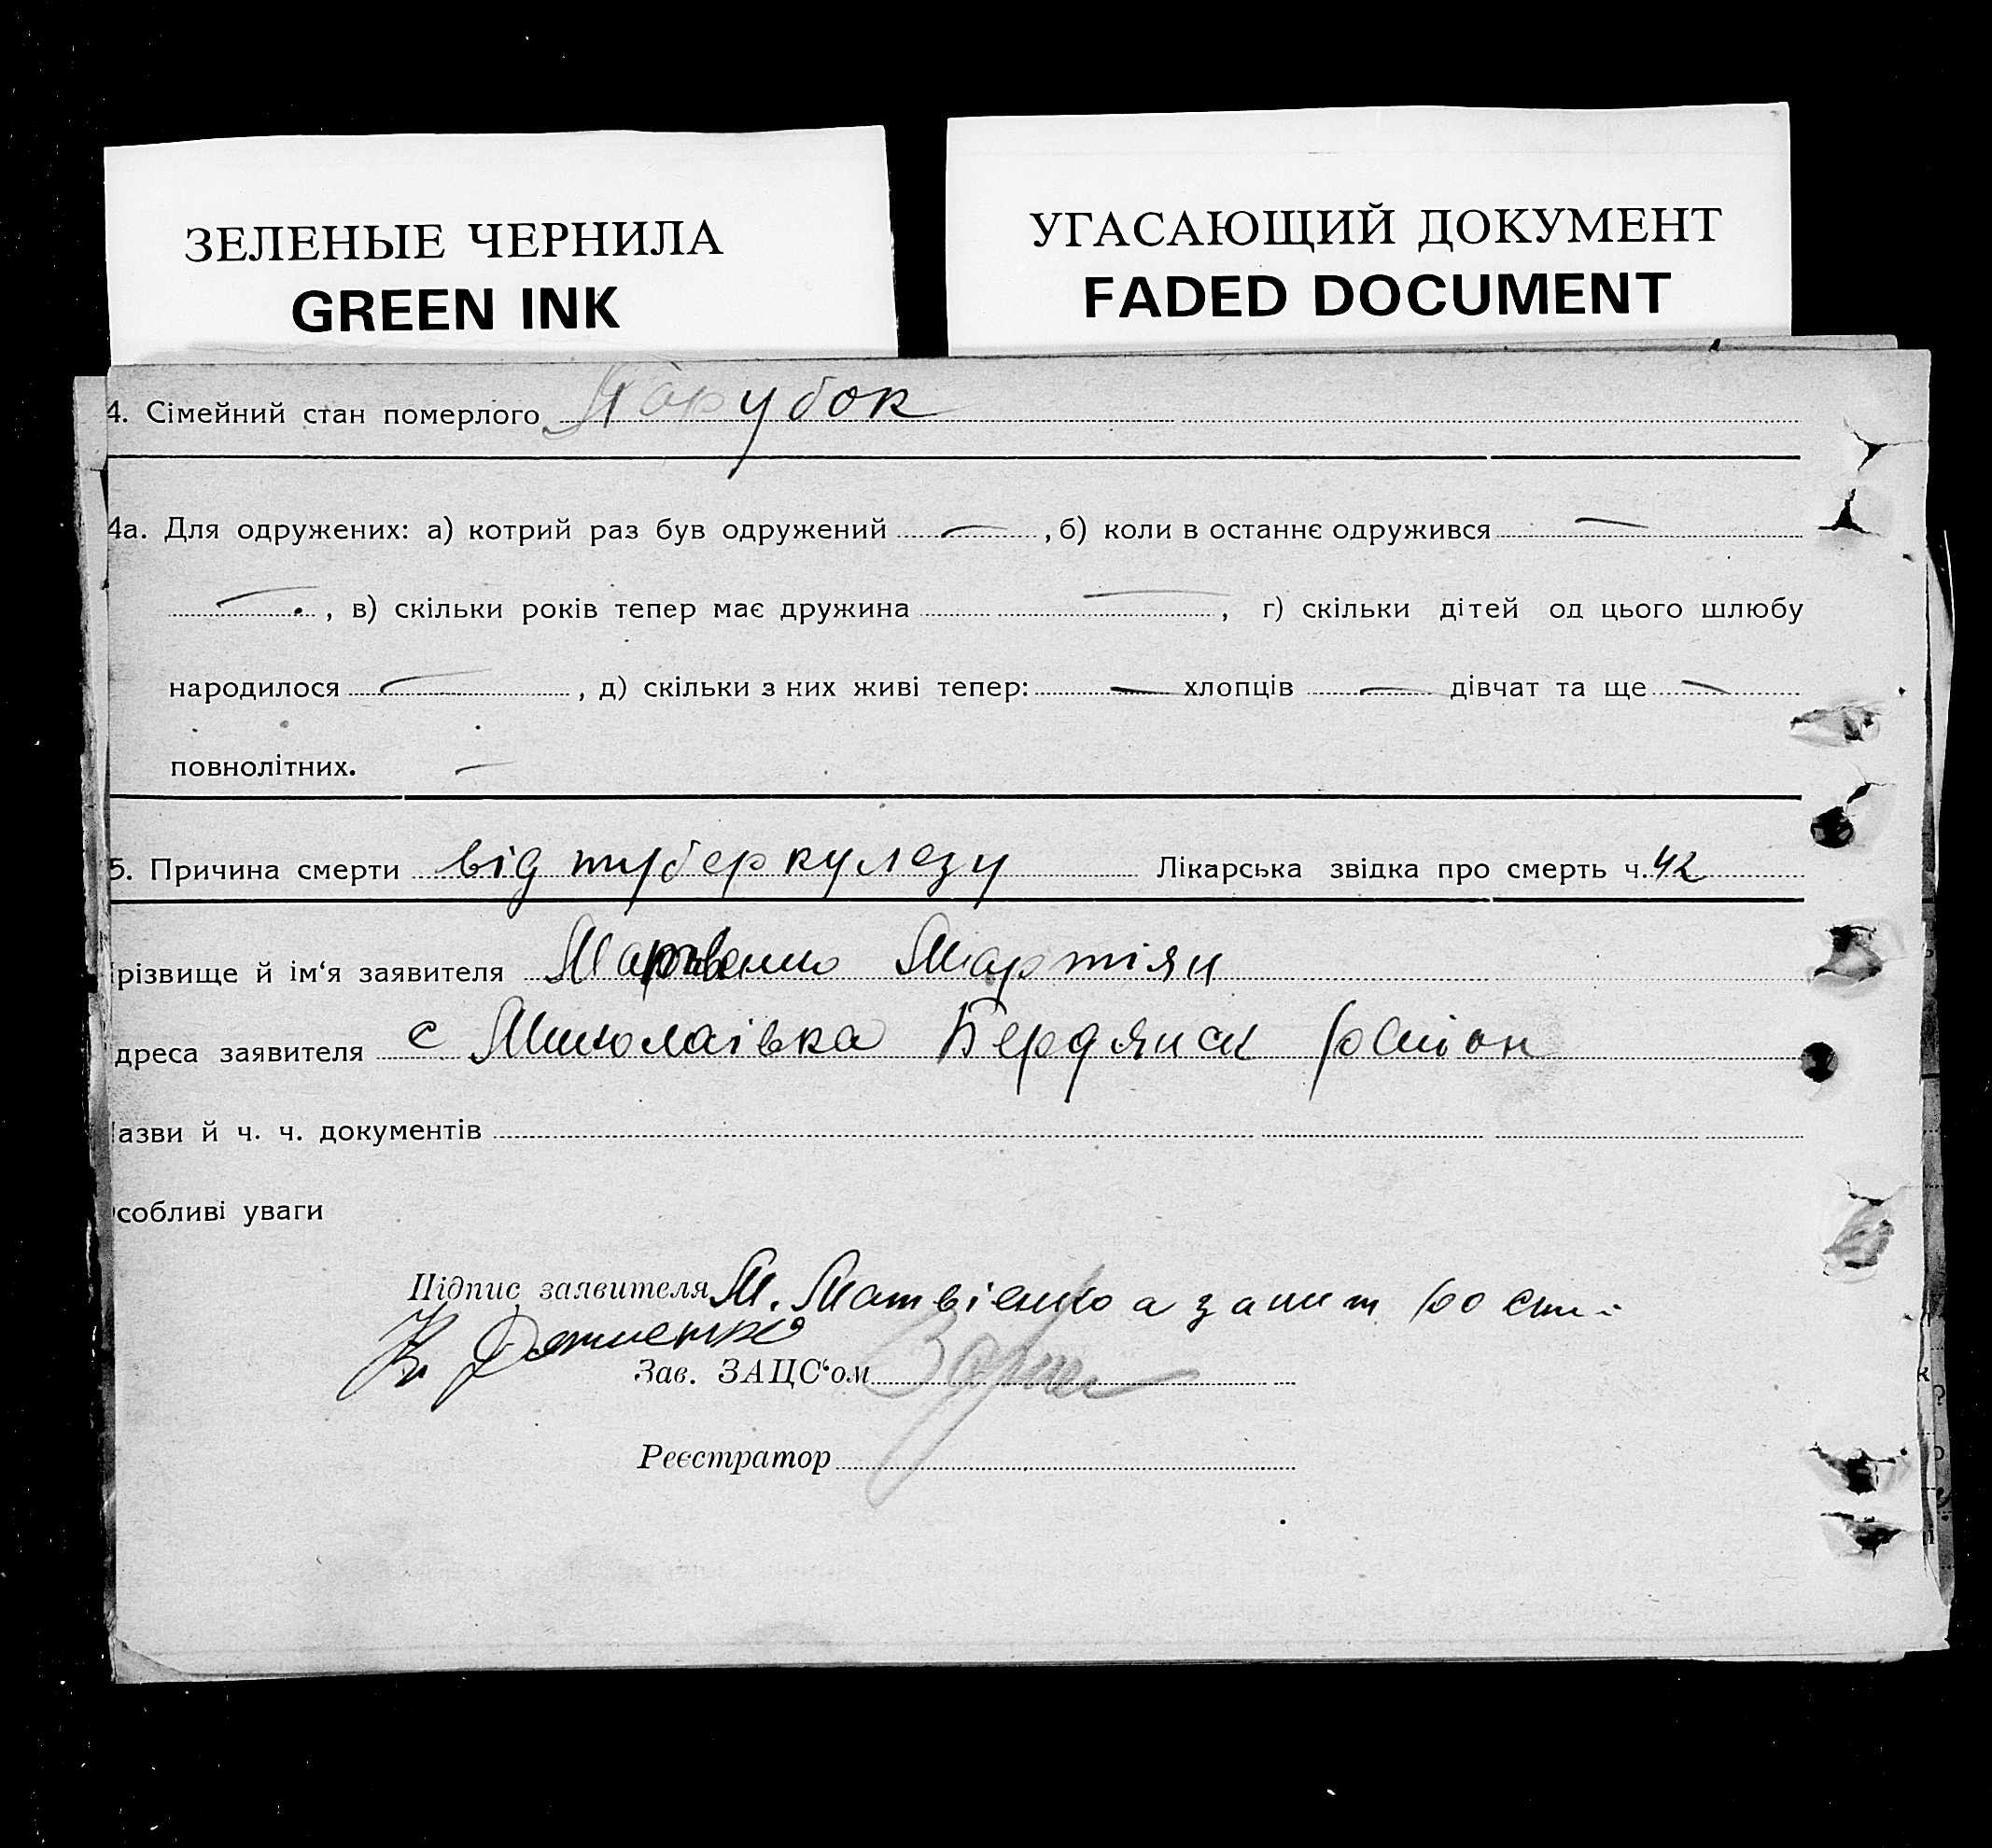 ЗЕЛЕНЫЕ ЧЕРНИЛА
GREEN INK
УГАСАЮЩИЙ ДОКУМЕНТ
FADED DOCUMENT
4. Сімейний стан померлого Парубок
4а. Для одружених: а) котрий раз був одружений — , б) коли в останнє одружився —
— , в) скільки років тепер має дружина — , г) скільки дітей од цього шлюбу
народилося — , д) скільки з них живі тепер: — хлопців — дівчат та ще —
повнолітних. —
5. Причина смерти від туберкулезу Лікарська звідка про смерть ч. 42
різвище й ім‘я заявителя Мартіян
дреса заявителя с Миколаівка Бердянск район
азви й ч. ч. документів
собливі уваги
Підпис заявителя М. Матвіенко а за
К.
Зав. ЗАЦС‘ом
Реєстратор